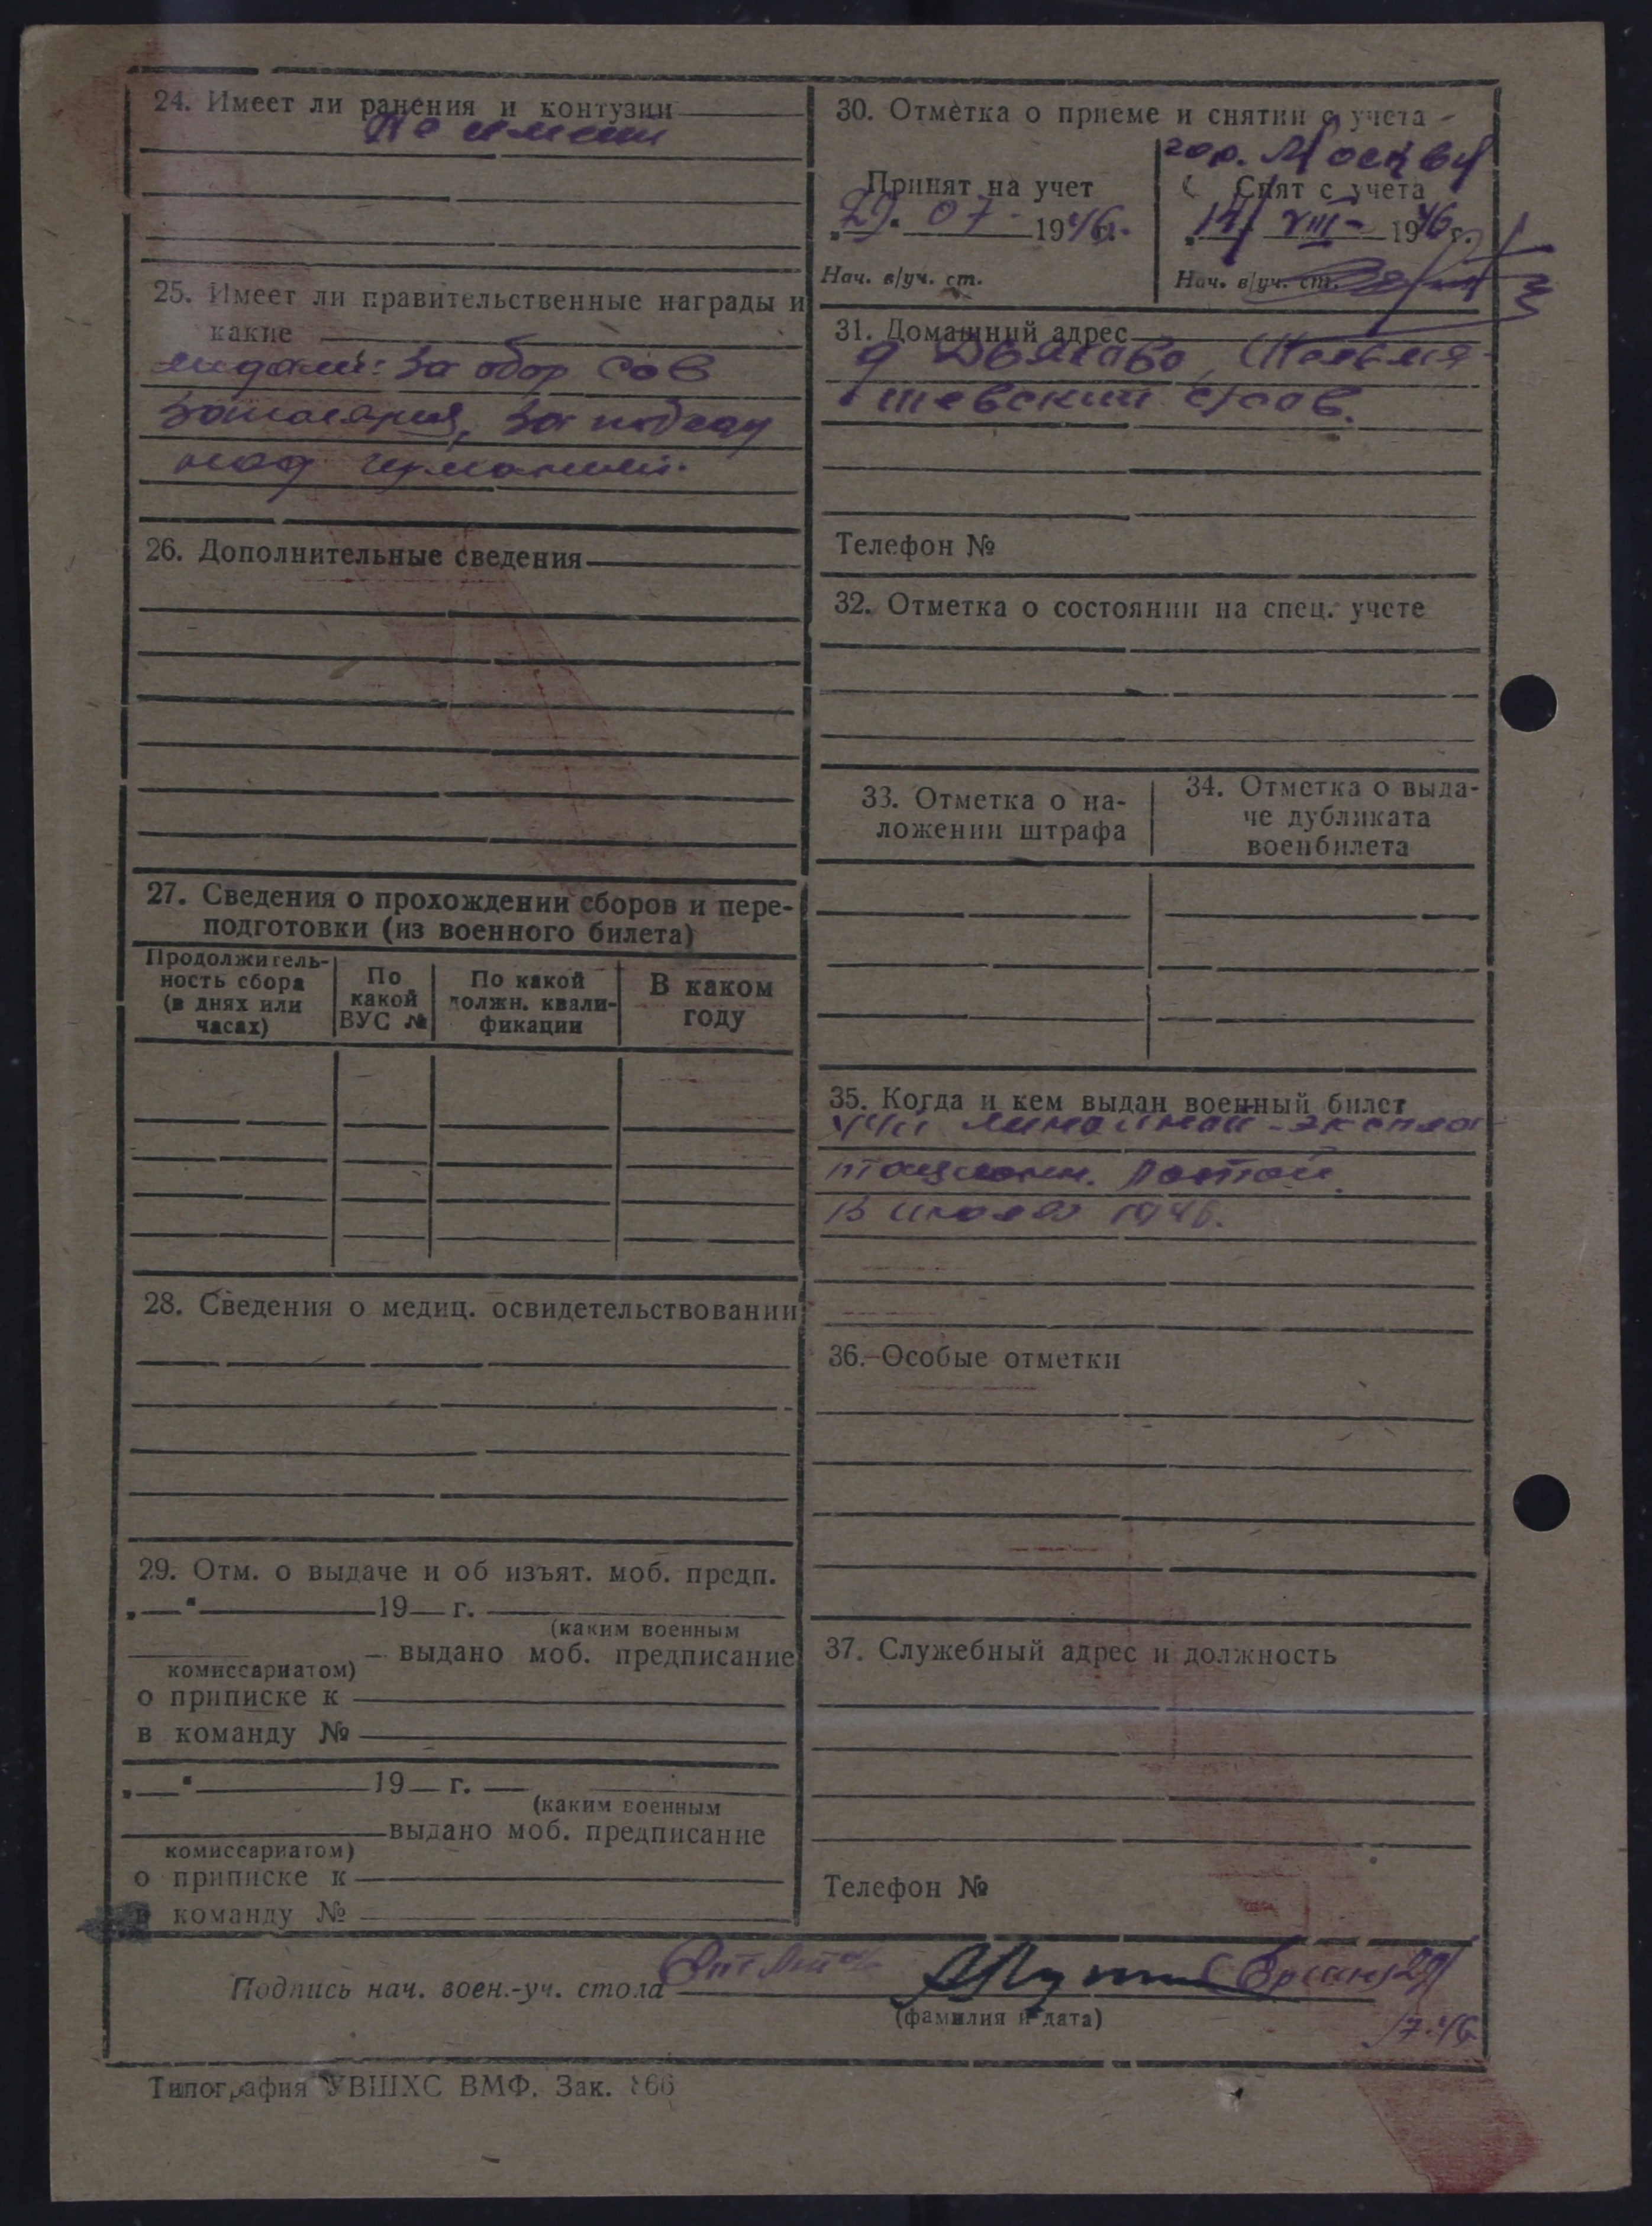 24. Имеет ли ранения и контузии
Не имеет
25. Имеет ли правительственные награды и
какие
медали: За обор Сов
Заполярия, За победу
над Германией.
26. Дополнительные сведения
27. Сведения о прохождении сборов и пере-
подготовки (из военного билета)
Продолжитель-
ность сбора
(в днях или
часах)
По
какой
ВУС №
По какой
должн. квали-
фикации
В каком
году
28. Сведения о медиц. освидетельствовании
29. Отм. о выдаче и об изъят. моб. предп.
„—“ 19— г.
(каким военным
выдано моб. предписание
комиссариатом)
о приписке к
в команду №
„—“ 19— г. —
(каким военным
выдано моб. предписание
комиссариатом)
о приписке к
в команду №
30. Отметка о приеме и снятии с учета
гор. Москву
Принят на учет
29. 07 1946.
Нач. в/уч. ст.
Снят с учета
14/ VIII- 1946 г.
Нач. в/уч. ст.
31. Домашний адрес
д
шевский с/сов.
Телефон №
32. Отметка о состоянии на спец. учете
33. Отметка о на-
ложении штрафа
34. Отметка о выда-
че дубликата
военбилета
35. Когда и кем выдан военный билет
линейной-эксплоа
тационн. ротой
В июле 1946.
36. Особые отметки
37. Служебный адрес и должность
Телефон №
Подпись нач. воен.-уч. стола
(фамилия и дата)
29/
7.46
Типография УВШХС ВМФ. Зак. 866